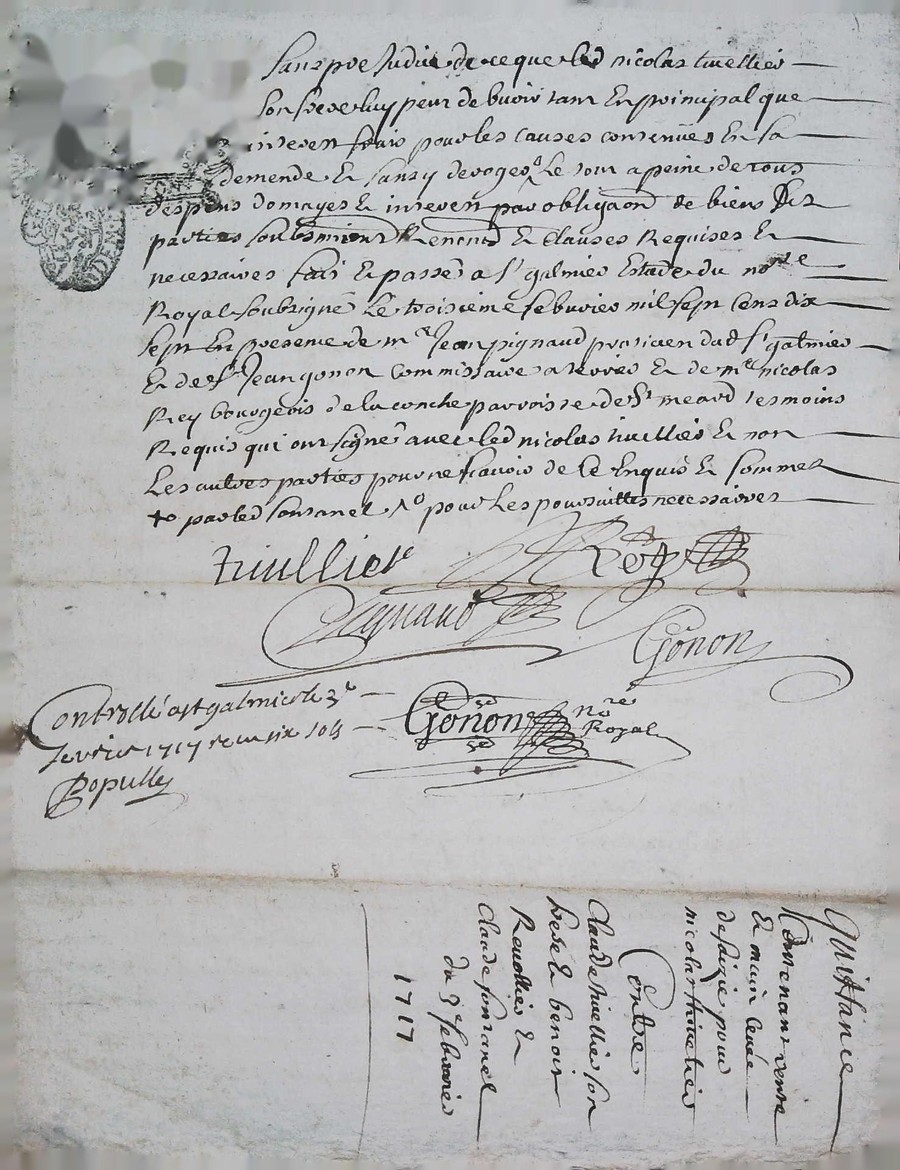 sans preJudice de ce que led nicolas tivellier
son frere luy peut debvoir tant En principal que
interest frais pour les causes contenues En sa
demende Et sans y deroger Le tout a peine de tous
despens domages Et interest par obligaon de biens des
parties soubmions Renond Et Clauses Requises Et
necessaires fait Et passé a st galmier Estude du nore
Royal soubsigné Le troisieme febvrier mil sept cens dix
sept En presence de mr Jean pignaud praticien dud st galmier
Et de sr Jean gonon commissaire a terrier Et de me nicolas
Rey bourgeois de la conche parroisse de st meard tesmoins
Requis qui ont signé avec led nicolas tivellier Et non
Les autres parties pour ne scavoir de ce Enquis Et sommes
par led pour Les poursuittes necessaires
tivillier Rey
pignaud
Gonon
Controllé a st galmier le 3e
fevrier 1717 receu six sols
Gonon nore Royal
Popülle
Quittance
Contenant vente
Et main levée
de saisie pour
nicolas thivelier
Contre
Claude tivellier son
frere Et benoit
Revollier Et
Claude fontanel
du 3e febvrier
1717